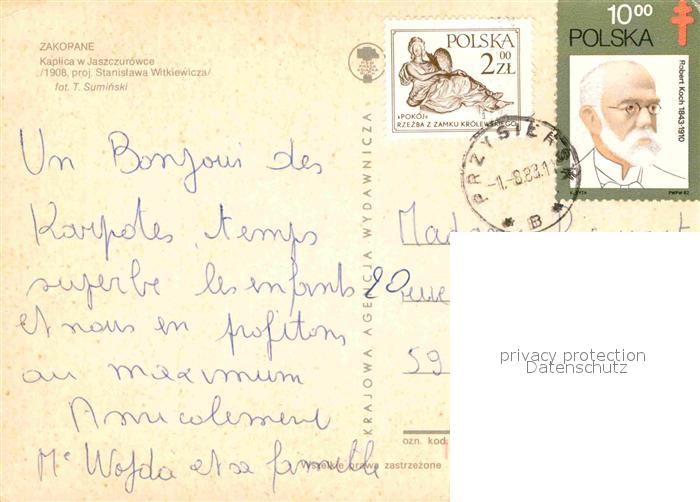 ZAKOPANE
Kaplica w Jaszczurówce
/1908, proj. Stanisława Witkiewicza/
fot. T. Sumiński
POLSKA
2 00 ZŁ
»POKÓJ«
RZEŹBA Z ZAMKU KRÓLEWSKIEGO
10 00
POLSKA
Robert Koch 1843-1910
PWPW 82
PRZYSIERSK
B
KRAJOWA AGENCJA WYDAWNICZA
Un Bonjour des
Karpates, temps
superbe les enfants
et nous en profitons
au maximum
Amicalement
Mc Wojda et sa famille
Madame
20 rue
59
ozn. kod
Wszelkie prawa zastrzeżone
privacy protection
Datenschutz